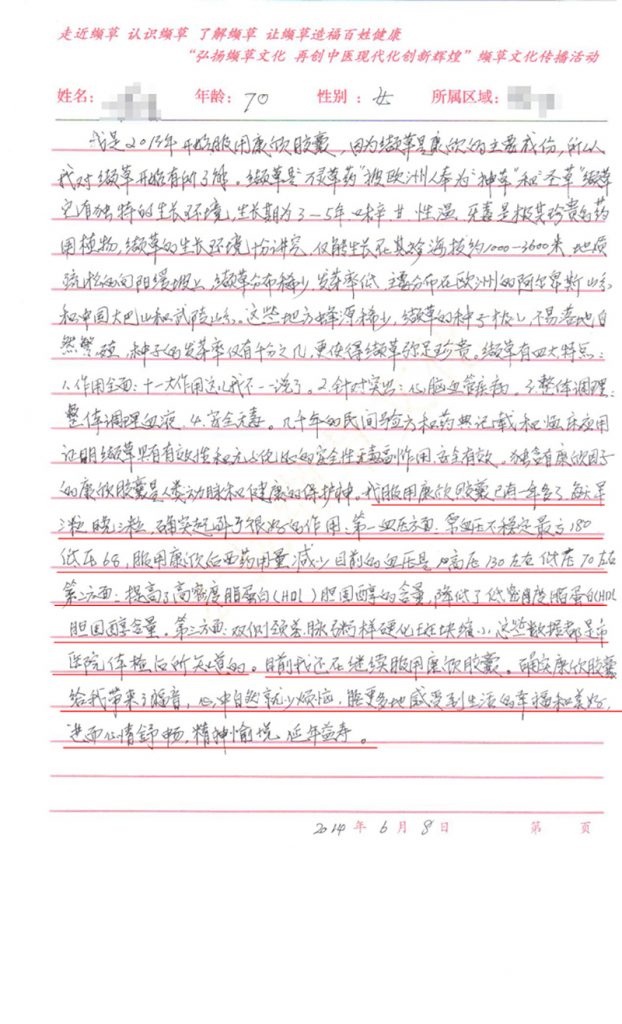 走近缬草 认识缬草 了解缬草 让缬草造福百姓健康
“弘扬缬草文化 再创中医现代化创新辉煌”缬草文化传播活动
姓名： 年龄：70 性别：女 所属区域：
我是2013年开始服用康欣胶囊，因为缬草是康欣的主要成份，所以
我对缬草开始有所了解。缬草是“万灵草药”被欧洲人奉为“神草”和“圣草”缬草
它有独特的生长环境，生长期为3—5年 味辛甘、性温 无毒是极其珍贵的药
用植物，缬草的生长环境十分讲究，仅能生长在其珍海拔约1000—3600米、地质
疏松的向阳缓坡上，缬草分布稀少，发芽率低、主要分布在欧洲的阿尔卑斯山系
和中国大巴山和武陵山系。这些地方蜂源稀少，缬草的种子极小 不易落地自
然繁殖，种子的发芽率仅有千分之几，更使得缬草弥足珍贵。缬草有四大特点：
1.作用全面：十一大作用这儿我不一一说了。2.针对突出：心脑血管疾病。3.整体调理：
整体调理血液。4.安全无毒。几千年的民间验方和药典记载和临床应用
证明缬草具有有效性和无以伦比的安全性无毒副作用 安全有效。独含有康欣因子
的康欣胶囊是人类动脉和健康的保护神。我服用康欣胶囊已有一年多了，每天早
3粒 晚3粒，确实起到了很好的作用、第一血压方面：原血压不稳定最高180
低压68，服用康欣后西药用量减少 目前的血压是：高压130左右 低压70左右
第二方面：提高了高密度脂蛋白(HDL)胆固醇的含量，降低了低密度脂蛋白(HDL
胆固醇含量。第三方面：双侧颈总脉粥样硬化斑块缩小，这些数据都是市
医院体检后所知道的。目前我还在继续服用康欣胶囊。确实康欣胶囊
给我带来了福音，心中自然就少烦恼，能更多地感受到生活的幸福和美好，
进而心情舒畅，精神愉悦，延年益寿。
2014年6月8日 第 页